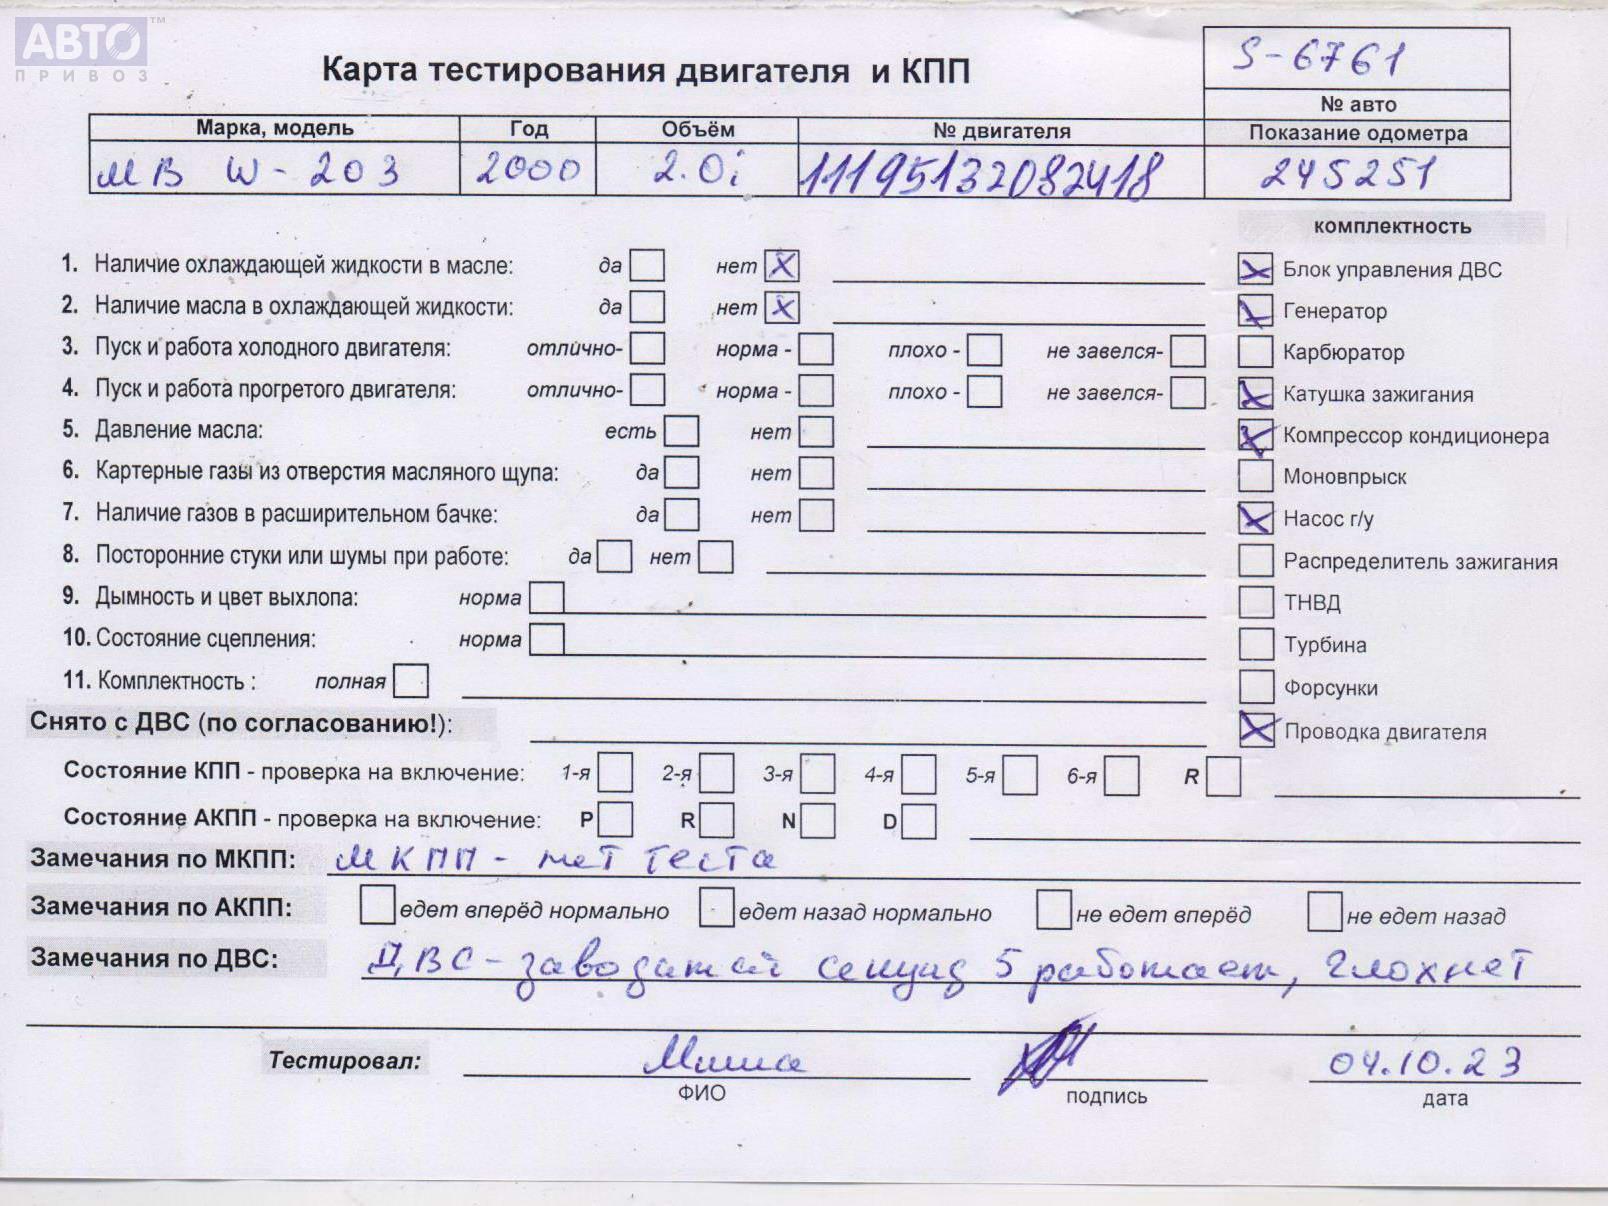 АВТО™
ПРИВОЗ
Карта тестирования двигателя и КПП
S-6761
№ авто
Марка, модель Год Объём № двигателя Показание одометра
МВ W-203 2000 2.0i 11195132082418 245251
комплектность
1. Наличие охлаждающей жидкости в масле: да нет X
Блок управления ДВС
2. Наличие масла в охлаждающей жидкости: да нет X
Генератор
3. Пуск и работа холодного двигателя: отлично- норма - плохо - не завелся-
Карбюратор
4. Пуск и работа прогретого двигателя: отлично- норма - плохо - не завелся-
Катушка зажигания
5. Давление масла: есть нет
Компрессор кондиционера
6. Картерные газы из отверстия масляного щупа: да нет
Моновпрыск
7. Наличие газов в расширительном бачке: да нет
Насос г/у
8. Посторонние стуки или шумы при работе: да нет
Распределитель зажигания
9. Дымность и цвет выхлопа: норма
ТНВД
10. Состояние сцепления: норма
Турбина
11. Комплектность : полная
Форсунки
Снято с ДВС (по согласованию!):
Проводка двигателя
Состояние КПП - проверка на включение: 1-я 2-я 3-я 4-я 5-я 6-я R
Состояние АКПП - проверка на включение: P R N D
Замечания по МКПП: МКПП - нет теста
Замечания по АКПП: едет вперёд нормально едет назад нормально не едет вперёд не едет назад
Замечания по ДВС: ДВС - заводится секунд 5 работает, глохнет
Тестировал: Миша 04.10.23
ФИО подпись дата